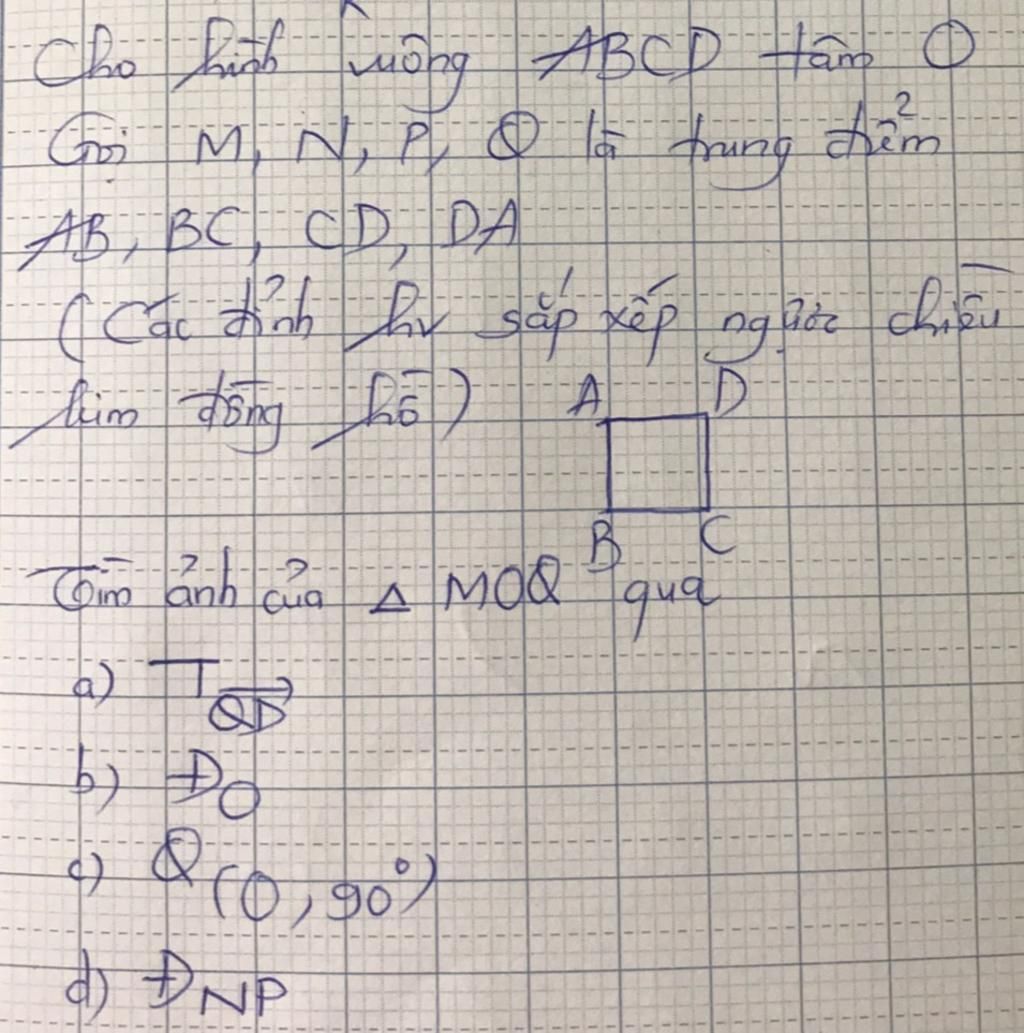 Cho hình vuông ABCD tâm O
Gọi M, N, P, Q là trung điểm
AB, BC, CD, DA
(Các đỉnh hv sắp xếp ngược chiều
kim đồng hồ)
A D
B C
Tìm ảnh của Δ MOQ qua
a) T_QD→
b) Đ_O
c) Q_(O, 90°)
d) Đ_NP